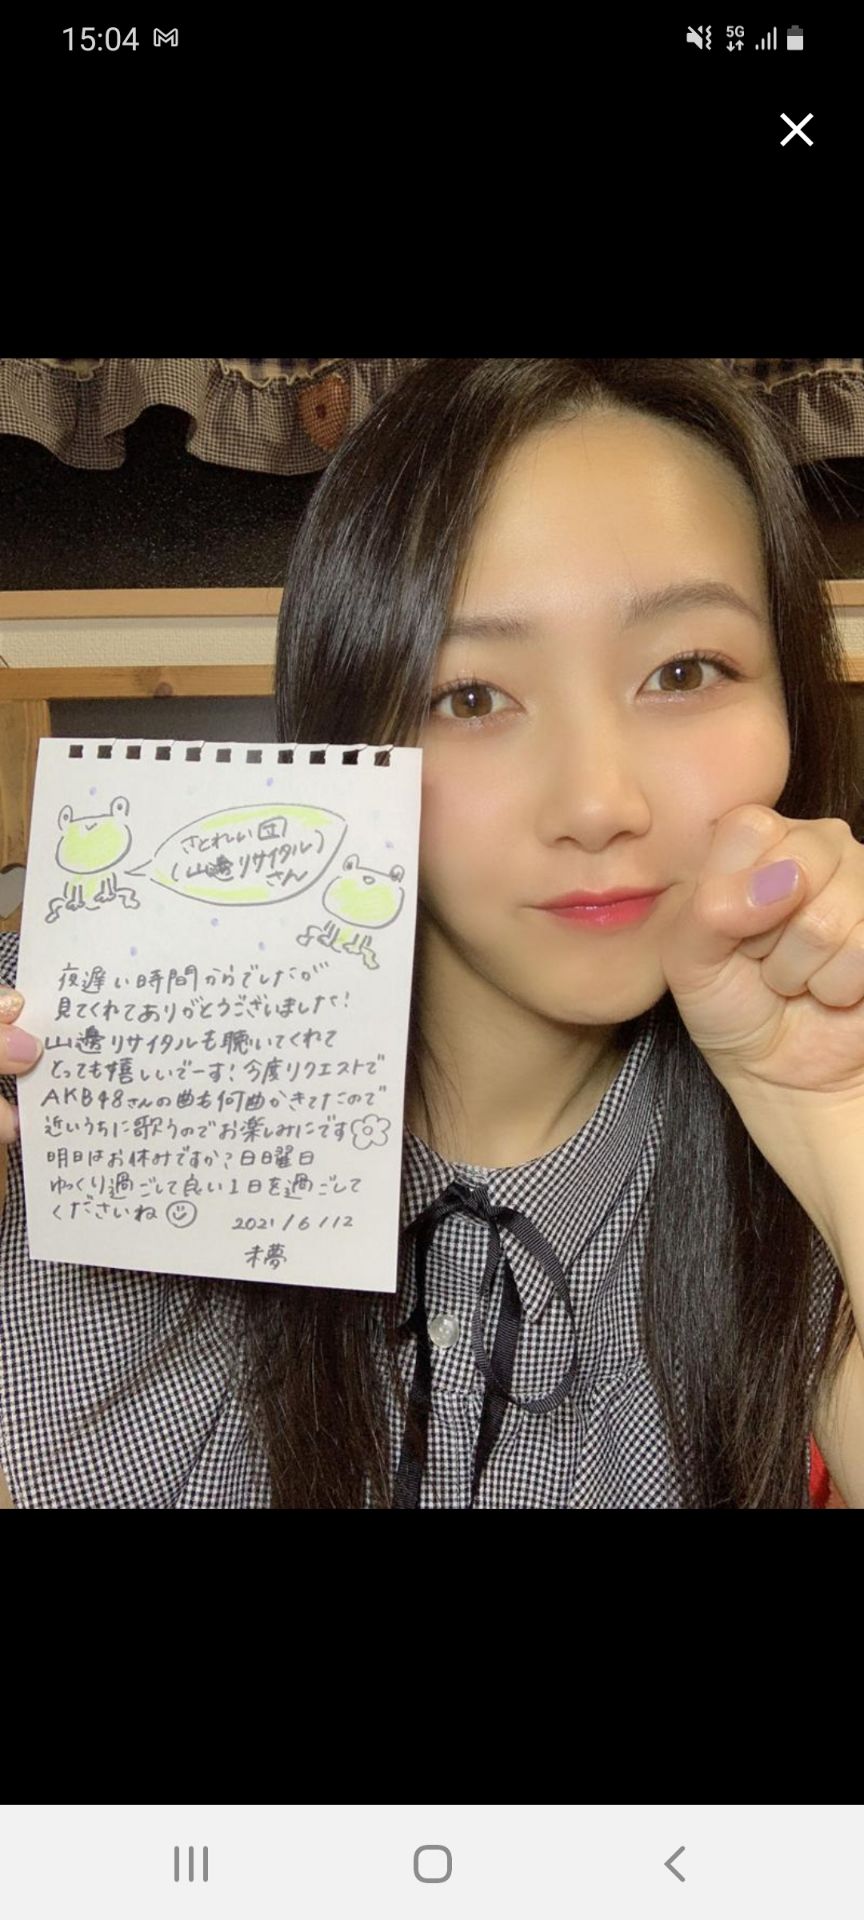 15:04
5G
さとれい団
(山邊リサイタル)
さん
夜遅い時間からでしたが
見てくれてありがとうございました!
山邊リサイタルも聴いてくれて
とっても嬉しいでーす!今度リクエストで
AKB48さんの曲も何曲かきてたので
近いうちに歌うのでお楽しみにです
明日はお休みですか?日曜日
ゆっくり過ごして良い1日を過ごして
くださいね
2021/6/12
未夢